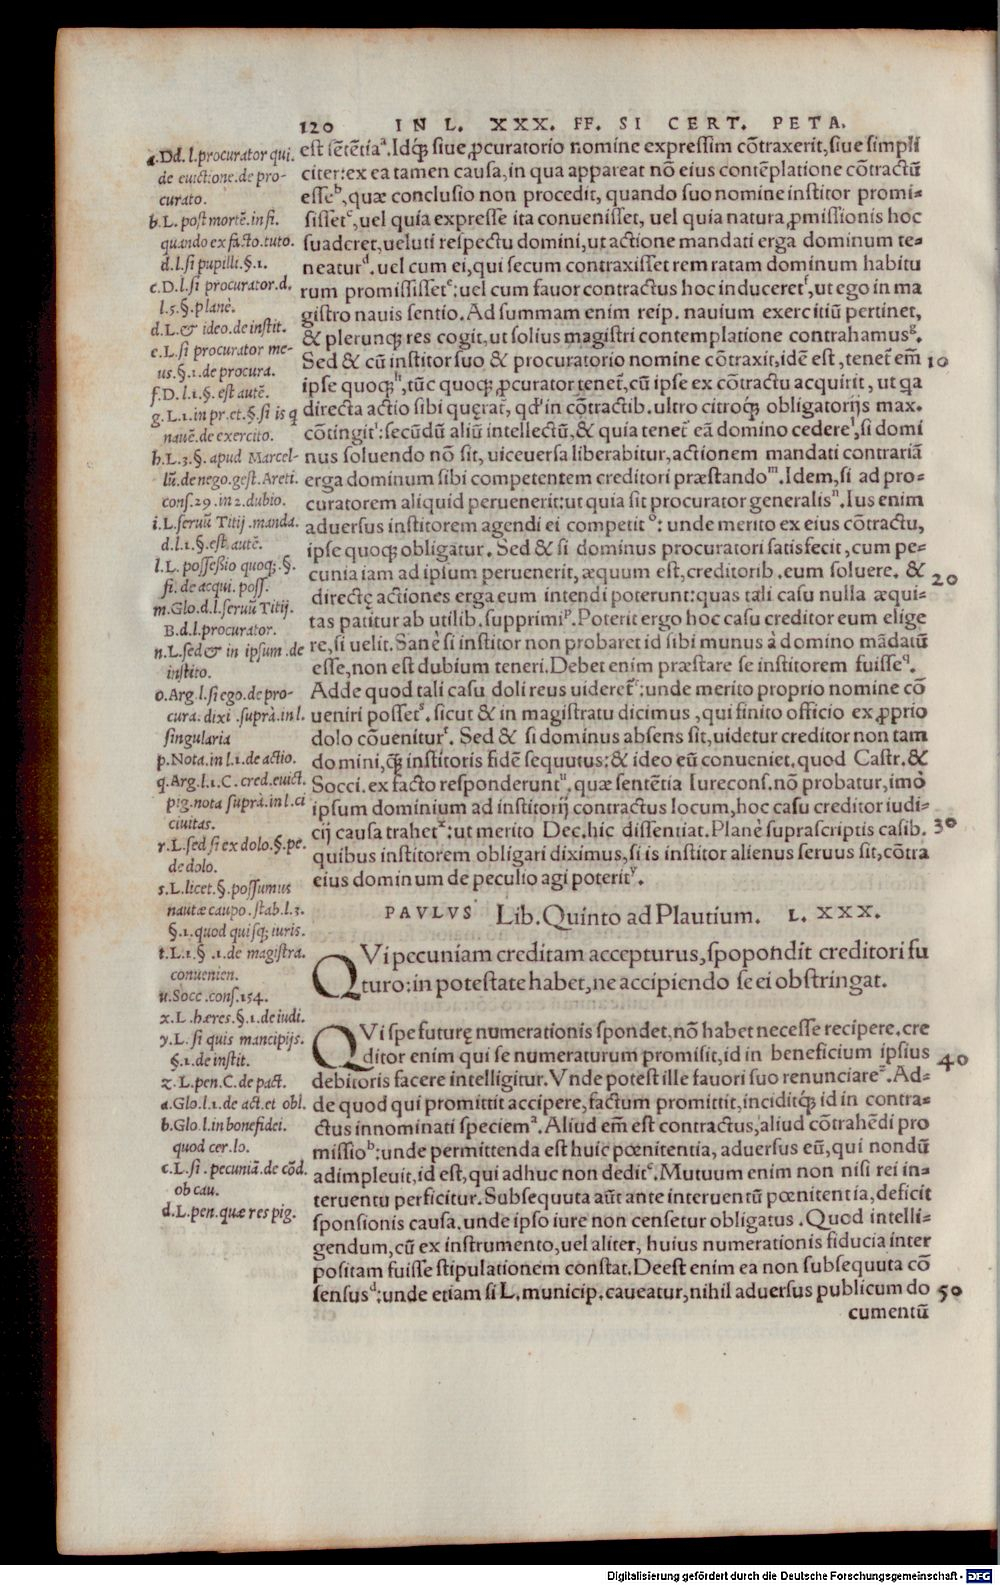 120 IN L. XXX. FF. SI CERT. PETA.
est sētētia^a. Idq́; siue ꝓcuratorio nomine expressim cōtraxerit, siue simpli
citer: ex ea tamen causa, in qua appareat nō eius contēplatione cōtractū
esse^b, quæ conclusio non procedit, quando suo nomine institor promi-
sisset^c, uel quia expresse ita conuenisset, uel quia natura ꝓmissionis hoc
suaderet, ueluti respectu domini, ut actione mandati erga dominum te-
neatur^d. uel cum ei, qui secum contraxisset rem ratam dominum habitu
rum promisisset^e: uel cum fauor contractus hoc induceret^f, ut ego in ma
gistro nauis sentio. Ad summam enim reip. nauium exercitiū pertinet,
& plerunq; res cogit, ut solius magistri contemplatione contrahamus^g.
Sed & cū institor suo & procuratorio nomine cōtraxit, idē est, tenet̄ em̄ 10
ipse quoq;^h, tūc quoq; ꝓcurator tenet̄, cū ipse ex cōtractu acquirit, ut qa
directa actio sibi querat̄, qd' in cōtractib. ultro citroq; obligatorijs max.
cōtingit^i: secūdū aliū intellectū, & quia tenet̄ eā domino cedere^l, si domi
nus soluendo nō sit, uiceuersa liberabitur, actionem mandati contrariā
erga dominum sibi competentem creditori præstando^m. Idem, si ad pro-
curatorem aliquid peruenerit: ut quia sit procurator generalis^n. Ius enim
aduersus institorem agendi ei competit^o: unde merito ex eius cōtractu,
ipse quoq; obligatur. Sed & si dominus procuratori satisfecit, cum pe-
cunia iam ad ipsum peruenerit, æquum est, creditorib. eum soluere. & 20
directę actiones erga eum intendi poterunt: quas tali casu nulla æqui-
tas patitur ab utilib. supprimi^p. Poterit ergo hoc casu creditor eum elige
re, si uelit. Sanè si institor non probaret id sibi munus à domino mādatū
esse, non est dubium teneri. Debet enim præstare se institorem fuisse^q.
Adde quod tali casu doli reus uideret̄^r: unde merito proprio nomine cō
ueniri posset^s. sicut & in magistratu dicimus, qui finito officio ex ꝓprio
dolo cōuenitur^t. Sed & si dominus absens sit, uidetur creditor non tam
domini, q̄; institoris fidē sequutus: & ideo eū conueniet, quod Castr. &
Socci. ex facto responderunt^u. quæ sentētia Iurecons. nō probatur, imò
ipsum dominium ad institorij contractus locum, hoc casu creditor iudi-
cij causa trahet^x: ut merito Dec. hic dissentiat. Planè suprascriptis casib. 30
quibus institorem obligari diximus, si is institor alienus seruus sit, cōtra
eius dominum de peculio agi poterit^y.
PAVLVS Lib. Quinto ad Plautium. L. XXX.
QVi pecuniam creditam accepturus, spopondit creditori fu
turo: in potestate habet, ne accipiendo se ei obstringat.
QVi spe futurę numerationis spondet, nō habet necesse recipere. cre
ditor enim qui se numeraturum promisit, id in beneficium ipsius 40
debitoris facere intelligitur. Vnde potest ille fauori suo renunciare^z. Ad-
de quod qui promittit accipere, factum promittit, inciditq́; id in contra-
ctus innominati speciem^a. Aliud em̄ est contractus, aliud cōtrahēdi pro
missio^b: unde permittenda est huic pœnitentia, aduersus eū, qui nondū
adimpleuit, id est, qui adhuc non dedit^c. Mutuum enim non nisi rei in-
teruentu perficitur. Subsequuta aūt ante interuentū pœnitentia, deficit
sponsionis causa, unde ipso iure non censetur obligatus. Quod intelli-
gendum, cū ex instrumento, uel aliter, huius numerationis fiducia inter
positam fuisse stipulationem constat. Deest enim ea non subsequuta cō
sensus^d: unde etiam si L. municip. caueatur, nihil aduersus publicum do 50
cumentū
a. Dd. l. procurator qui.
de euictione. de pro-
curato.
b. L. post mortē. in fi.
quando ex facto. tuto.
d. l. si pupilli. §. 1.
c. D. l. si procurator. d.
l. 5. §. planè.
d. L. & ideo. de instit.
e. L. si procurator me-
us. §. 1. de procura.
f. D. l. 1. §. est autē.
g. L. 1. in pr. et. §. si is q
nauē. de exercito.
h. L. 3. §. apud Marcel-
lū. de nego. gest. Areti.
cons. 29. in 2. dubio.
i. L. seruū Titij. manda.
d. l. 1. §. est autē.
l. L. possessio quoq;. §.
fi. de acqui. poss.
m. Glo. d. l. seruū Titij.
B. d. l. procurator.
n. L. sed & in ipsum. de
instito.
o. Arg. l. si ego. de pro-
cura. dixi. suprà. in l.
singularia
p. Nota. in l. 1. de actio.
q. Arg. l. 1. C. cred. euict.
pig. nota suprà. in l. ci
ciuitas.
r. L. sed si ex dolo. §. pe.
de dolo.
s. L. licet. §. possumus
nautæ caupo. stab. l. 3.
§. 1. quod quisq; iuris.
t. L. 1. §. 1. de magistra.
conuenien.
u. Socc. cons. 154.
x. L. hæres. §. 1. de iudi.
y. L. si quis mancipijs.
§. 1. de instit.
z. L. pen. C. de pact.
a. Glo. l. 1. de act. et obl.
b. Glo. l. in bonefidei.
quod cer. lo.
c. L. si. pecuniā. de cōd.
ob cau.
d. L. pen. quæ res pig.
Digitalisierung gefördert durch die Deutsche Forschungsgemeinschaft - DFG